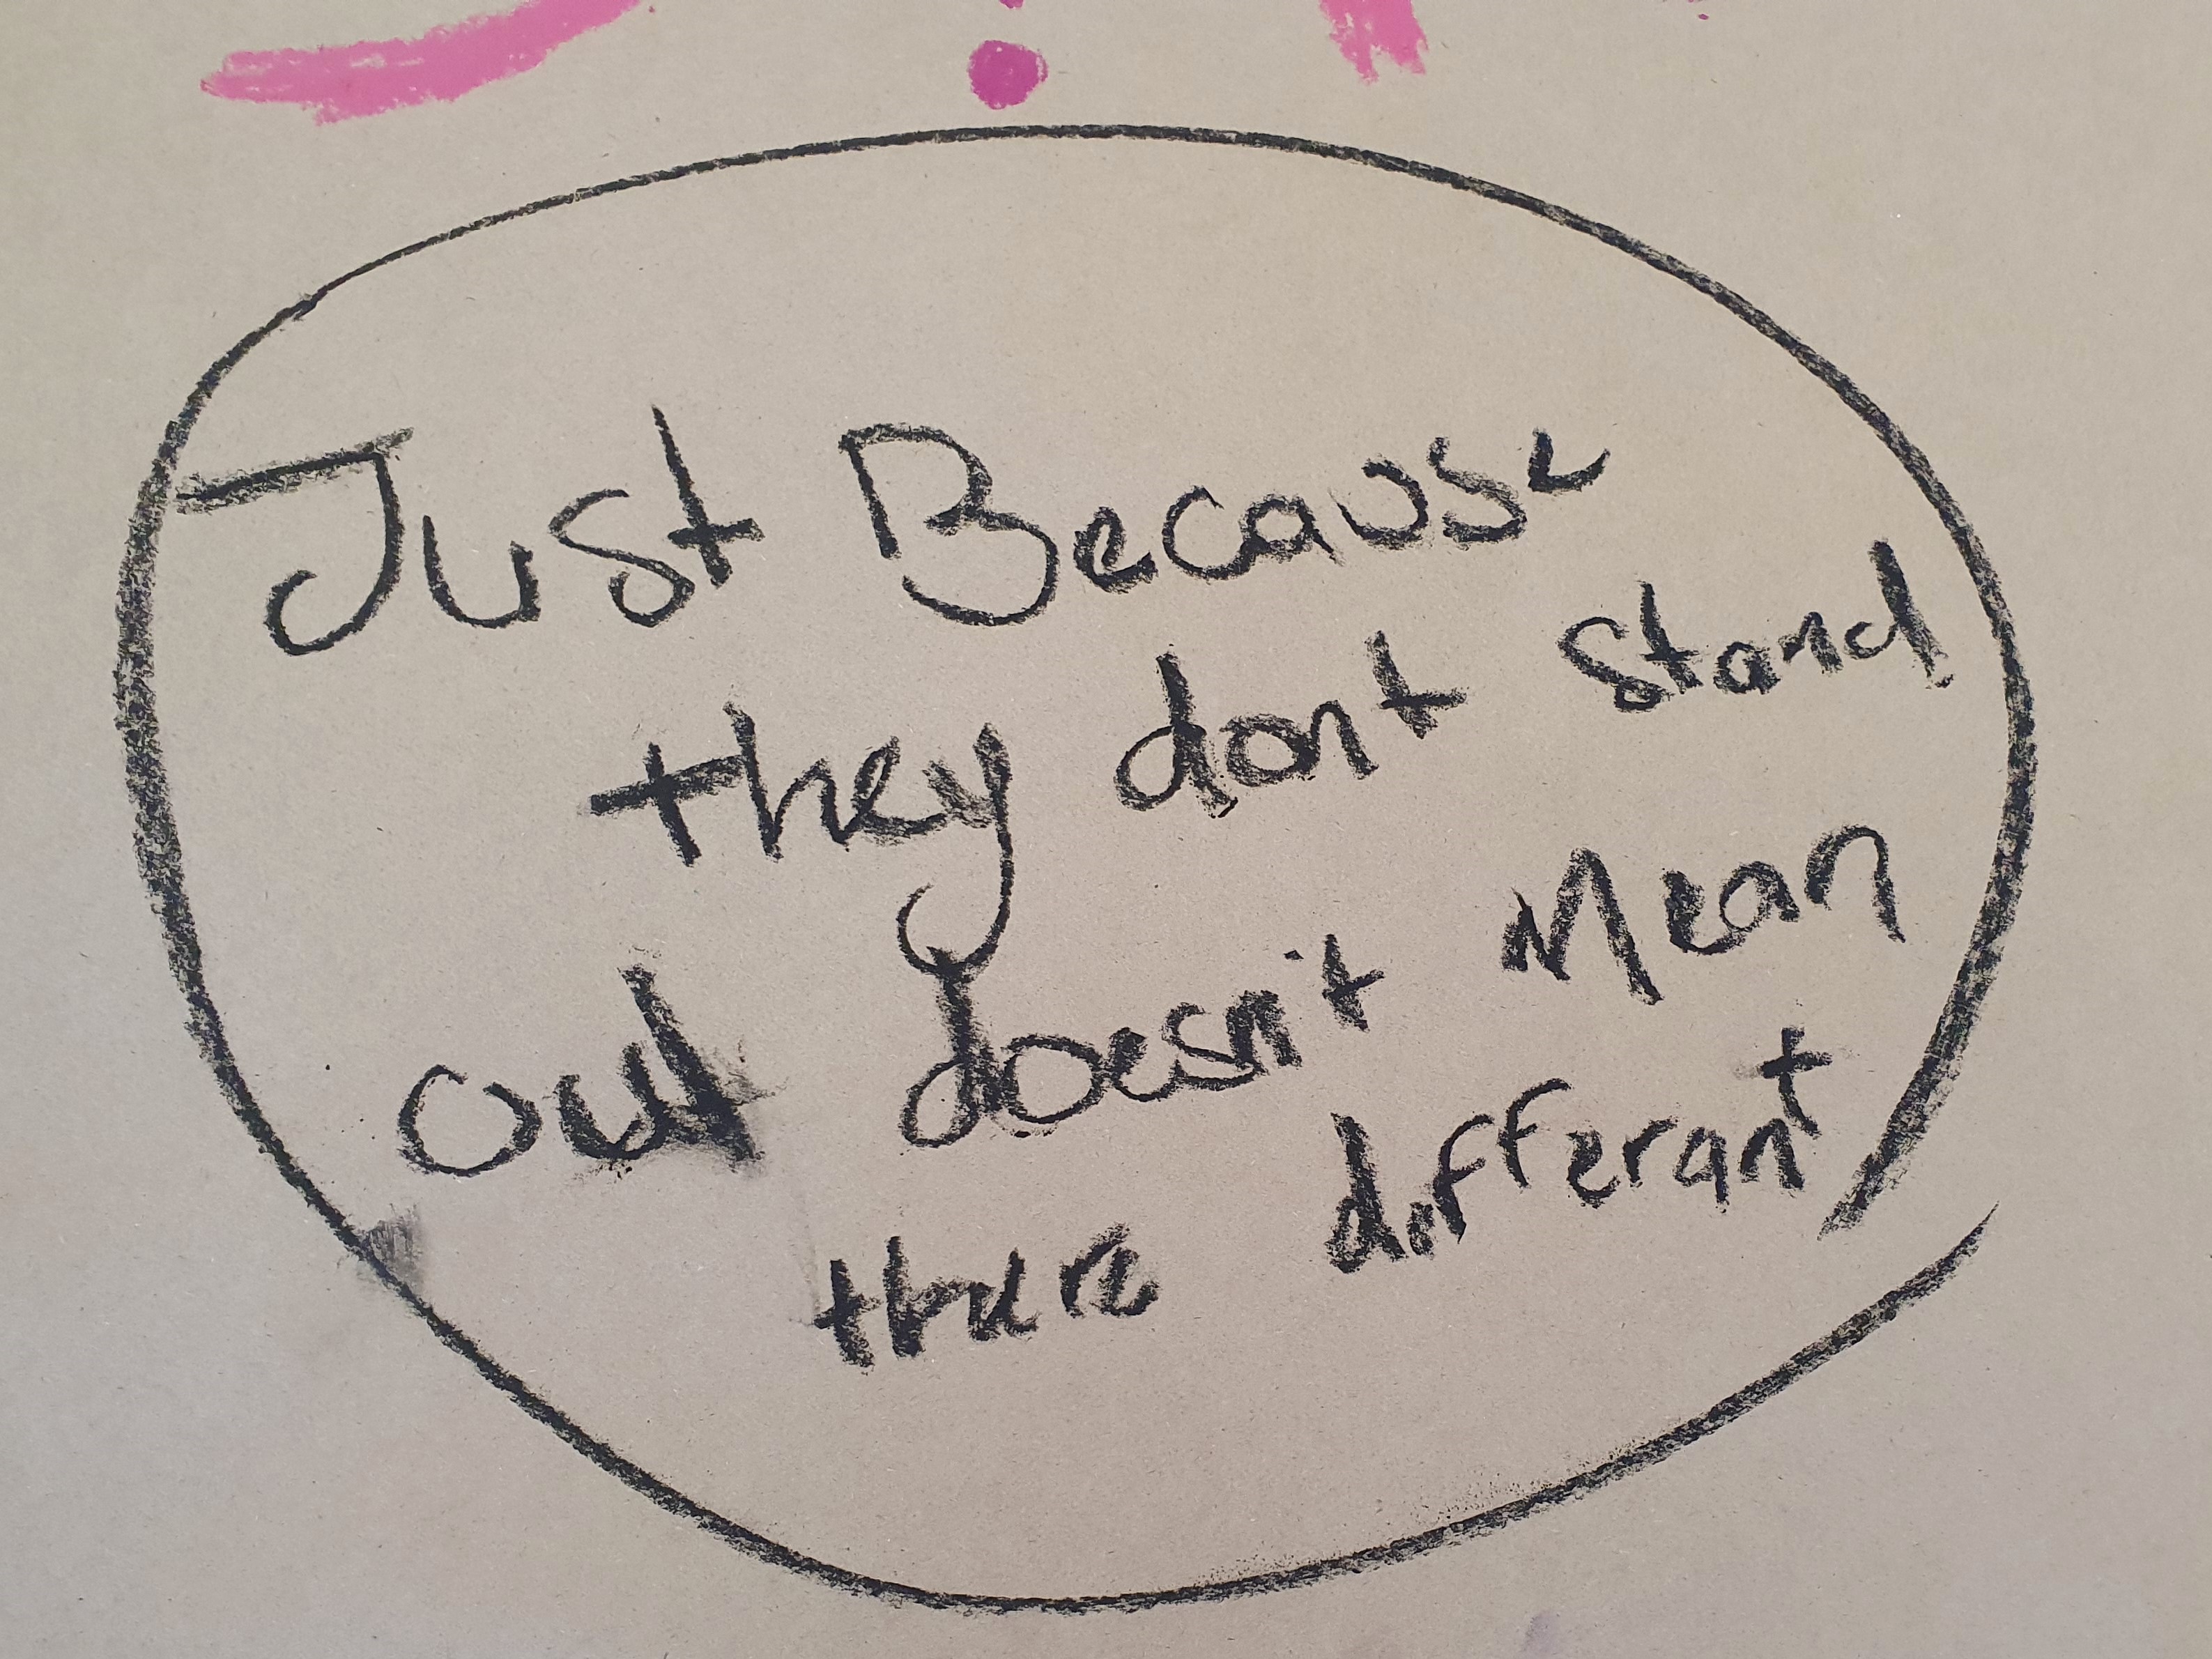 Just Because
they dont stand
out doesn't Mean
there differant